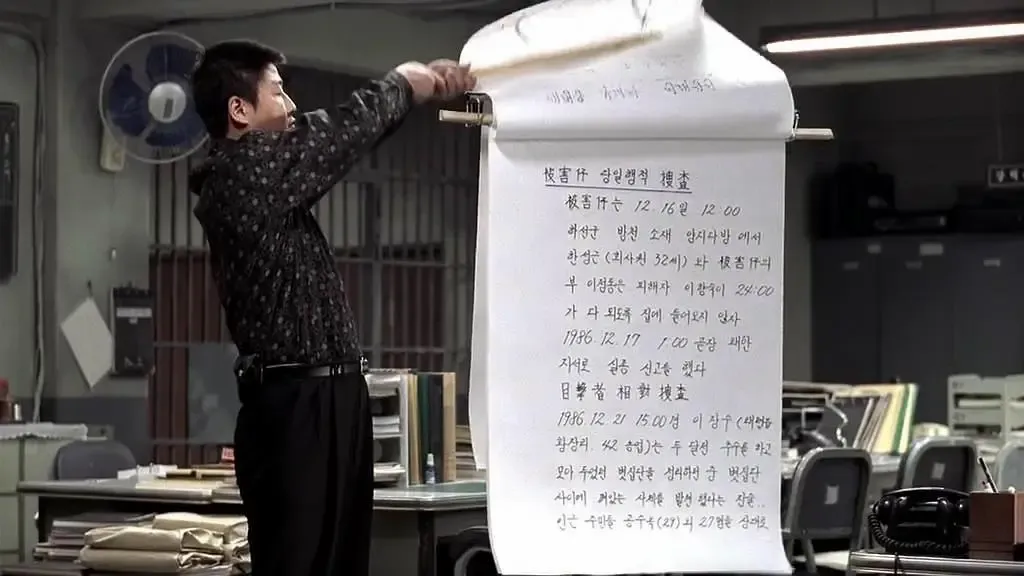 被害仔 당일행적 搜査
被害仔는 12.16일 12:00
화성군 반천 소재 암시다방 에서
한성근(회사원 32세) 와 被害仔의
부 이점동은 피해자 이향숙이 24:00
가 다 되도록 집에 들어오지 않자
1986.12.17 1:00 태안
지서로 실종 신고를 했다
日擊者 相對 搜査
1986.12.21 15:00경 이 장수(태안읍
황장리. 42 농업)는 두 달전 수수를 하고
모아 두었던 볏짚단을 정리하던 中 볏짚단
사이에 끼있는 사체를 발견 했다는 진술..
인근 주민들 공수복(29)외 27명을 상대로